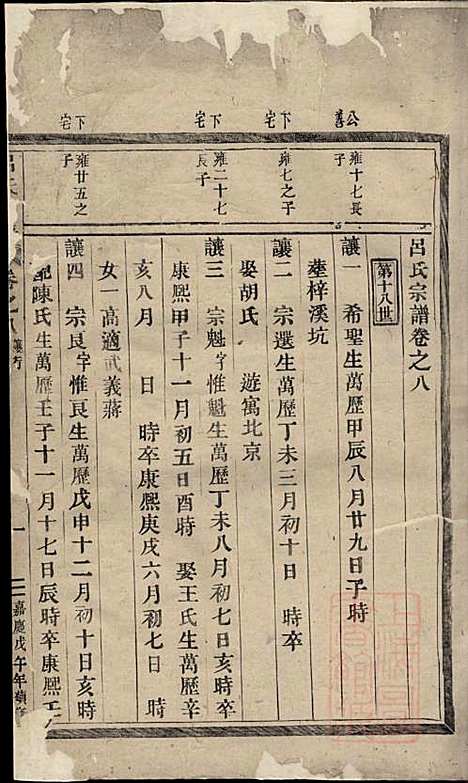 呂氏宗譜卷之八
第十八世
公善
雍十七長子
讓一　希聖生萬歷甲辰八月廿九日子時
塟梓溪坑
下宅
雍七之子
讓二　宗選生萬歷丁未三月初十日　時卒
娶胡氏　遊寓北京
下宅
雍二十七長子
讓三　宗魁字惟魁生萬歷丁未八月初七日亥時卒
康熙甲子十一月初五日酉時　娶王氏生萬歷辛
亥八月　日　時卒康熙庚戌六月初七日　時
女一高適武義蔣
下宅
雍廿五之子
讓四　宗良字惟良生萬歷戊申十二月初十日亥時
配陳氏生萬歷壬子十一月十七日辰時卒康熙壬
卷之八　讓行　一　嘉慶戊午年